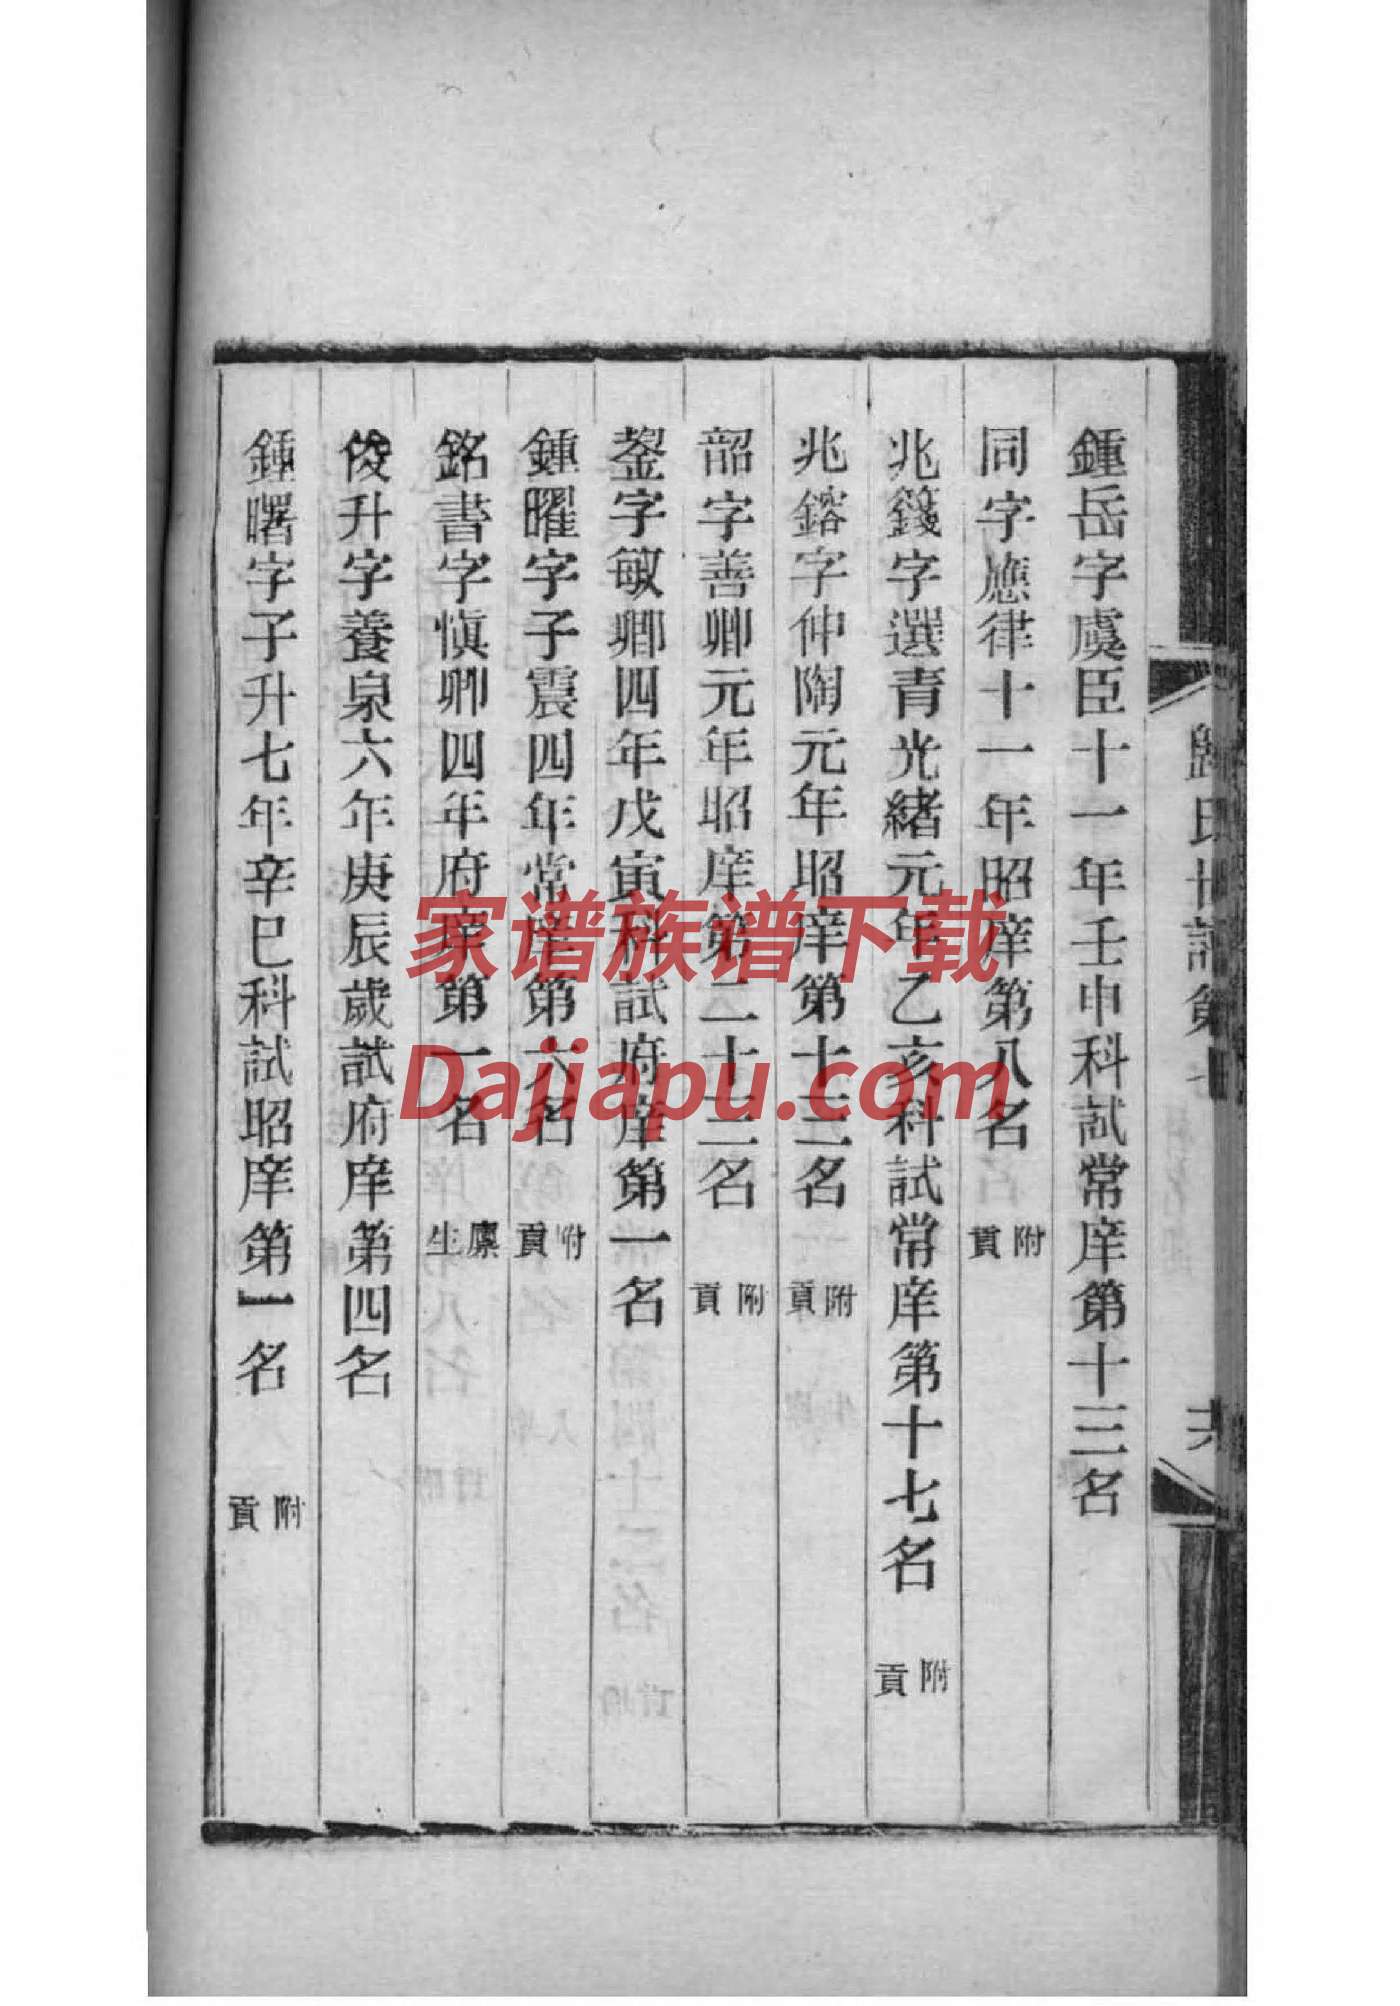 歸氏世譜
鍾岳字虞臣十一年壬申科試常庠第十三名
同字應律十一年昭庠第八名 附貢
兆籛字選青光緒元年乙亥科試常庠第十七名 附貢
兆鎔字仲陶元年昭庠第十三名 附貢
韶字善卿元年昭庠第二十三名 附貢
蓥字敏卿四年戊寅科試府庠第一名
鍾曜字子震四年常庠第六名 附貢
銘書字愼卿四年府庠第一名 廩生
俊升字養泉六年庚辰歲試府庠第四名
鍾曙字子升七年辛巳科試昭庠第一名 附貢
家谱族谱下载
Dajiapu.com